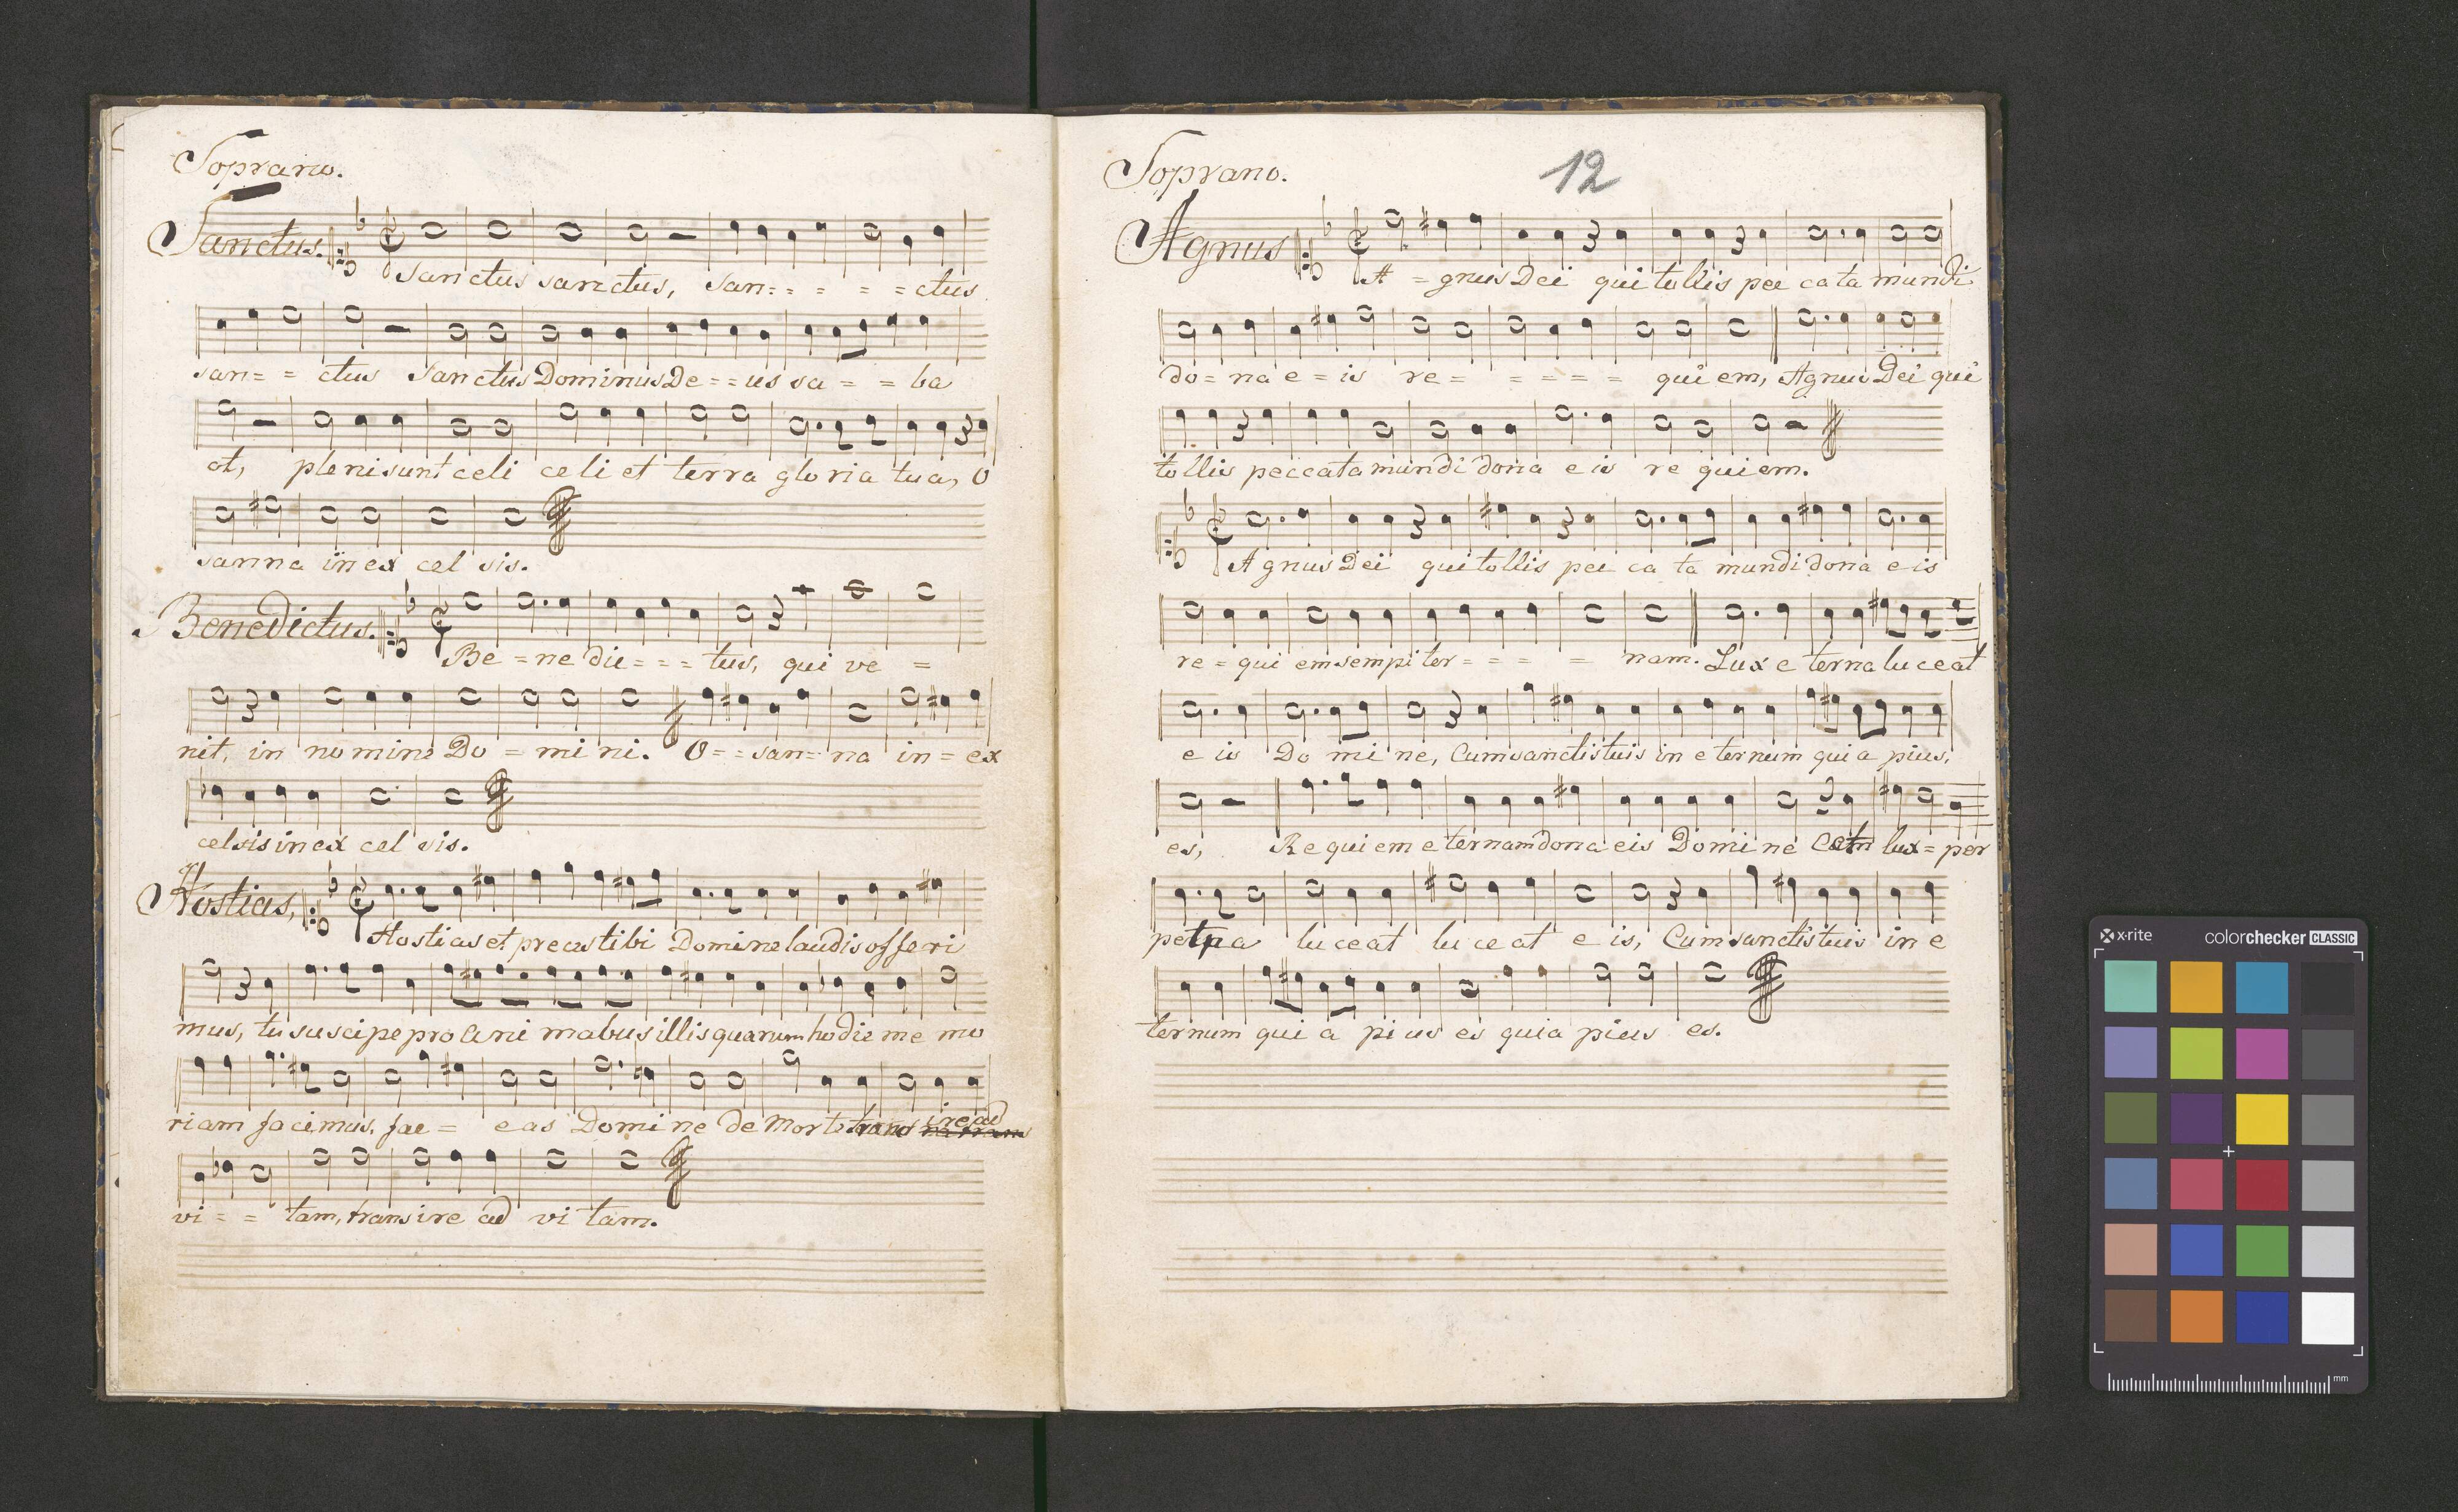 Soprano.
Sanctus.
Sanctus sanctus, San = = = = = ctus
san = = ctus Sanctus Dominus De = = us sa = = ba
ot, pleni sunt celi celi et terra gloria tua, O
sanna in ex cel sis.
Benedictus.
Be = ne dic = = = tus, qui ve =
nit, in nomine Do = mi ni. O = = san = na in = ex
celsis in ex cel sis.
Hostias,
Hostias et preces tibi Domine laudis offeri
mus, tu suscipe pro Ani mabus illis quarum hodie me mo
riam facimus, fac = eas Domine de Morte trans ire ad
vi = = tam, transire ad vi tam.
Soprano.
12
Agnus
A = gnus Dei qui tollis pec cata mundi
do = na e = is re = = = = = qui em, Agnus Dei qui
tollis peccata mundi dona e is re quiem.
Agnus Dei qui tollis pec ca ta mundi dona e is
re = qui em sempi ter = = = = nam. Lux e terna luceat
e is Do mi ne, Cum sanctis tuis in e ternum qui a pius,
es, Requiem e ternam dona eis Domi ne et lux = per
petua luceat lu ce at e is, Cum sanctis tuis in e
ternum qui a pi us es quia pius es.
x-rite
colorchecker CLASSIC
mm